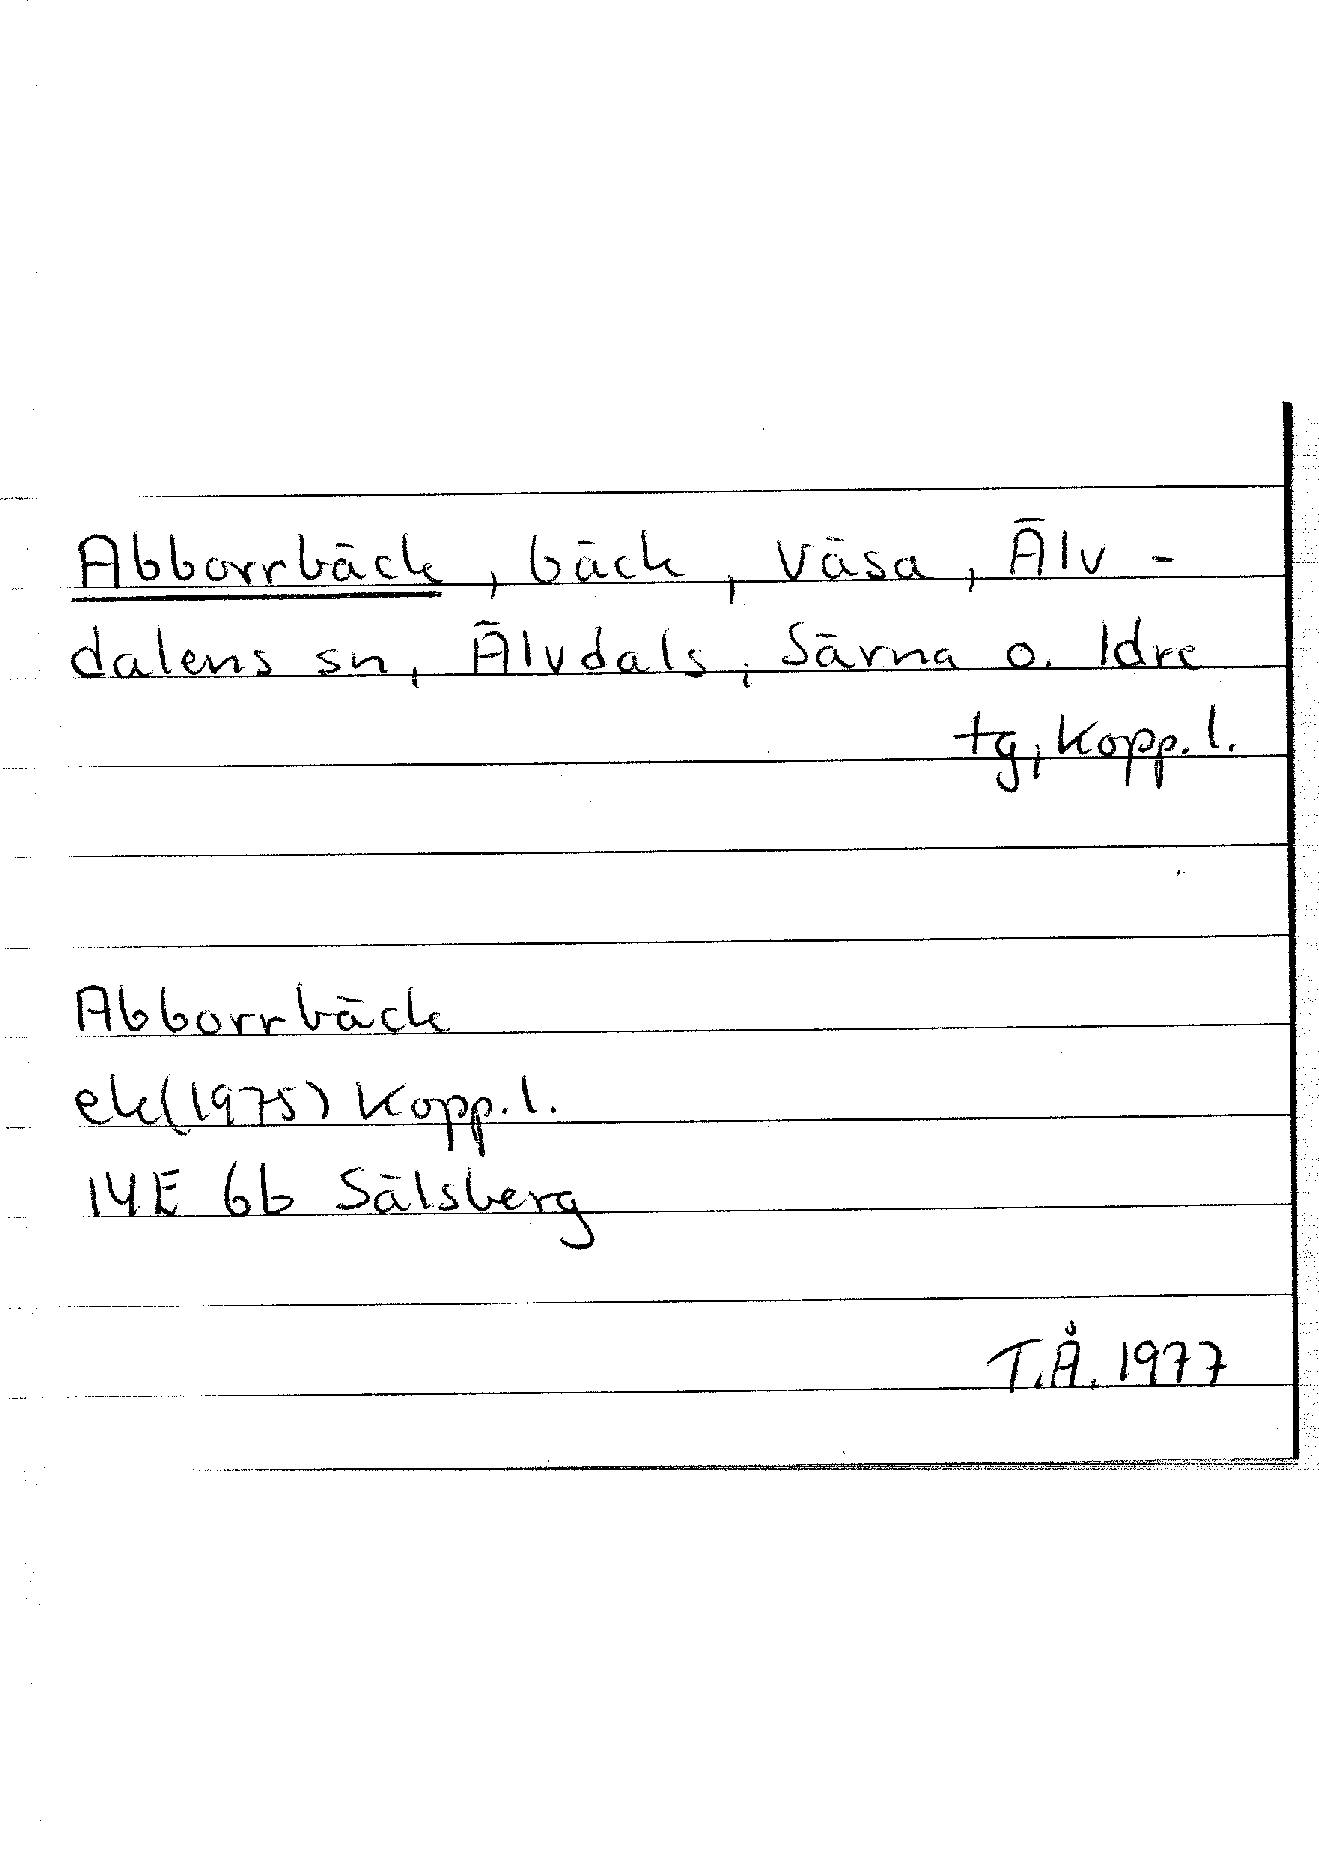 Abborrbäck, bäck, Väsa, Älv-
dalens sn, Älvdals, Särna o. Idre
tg, Kopp. l.
Abborrbäck
ek(1975) Kopp. l.
14E 6b Sälsberg
T.Å. 1977